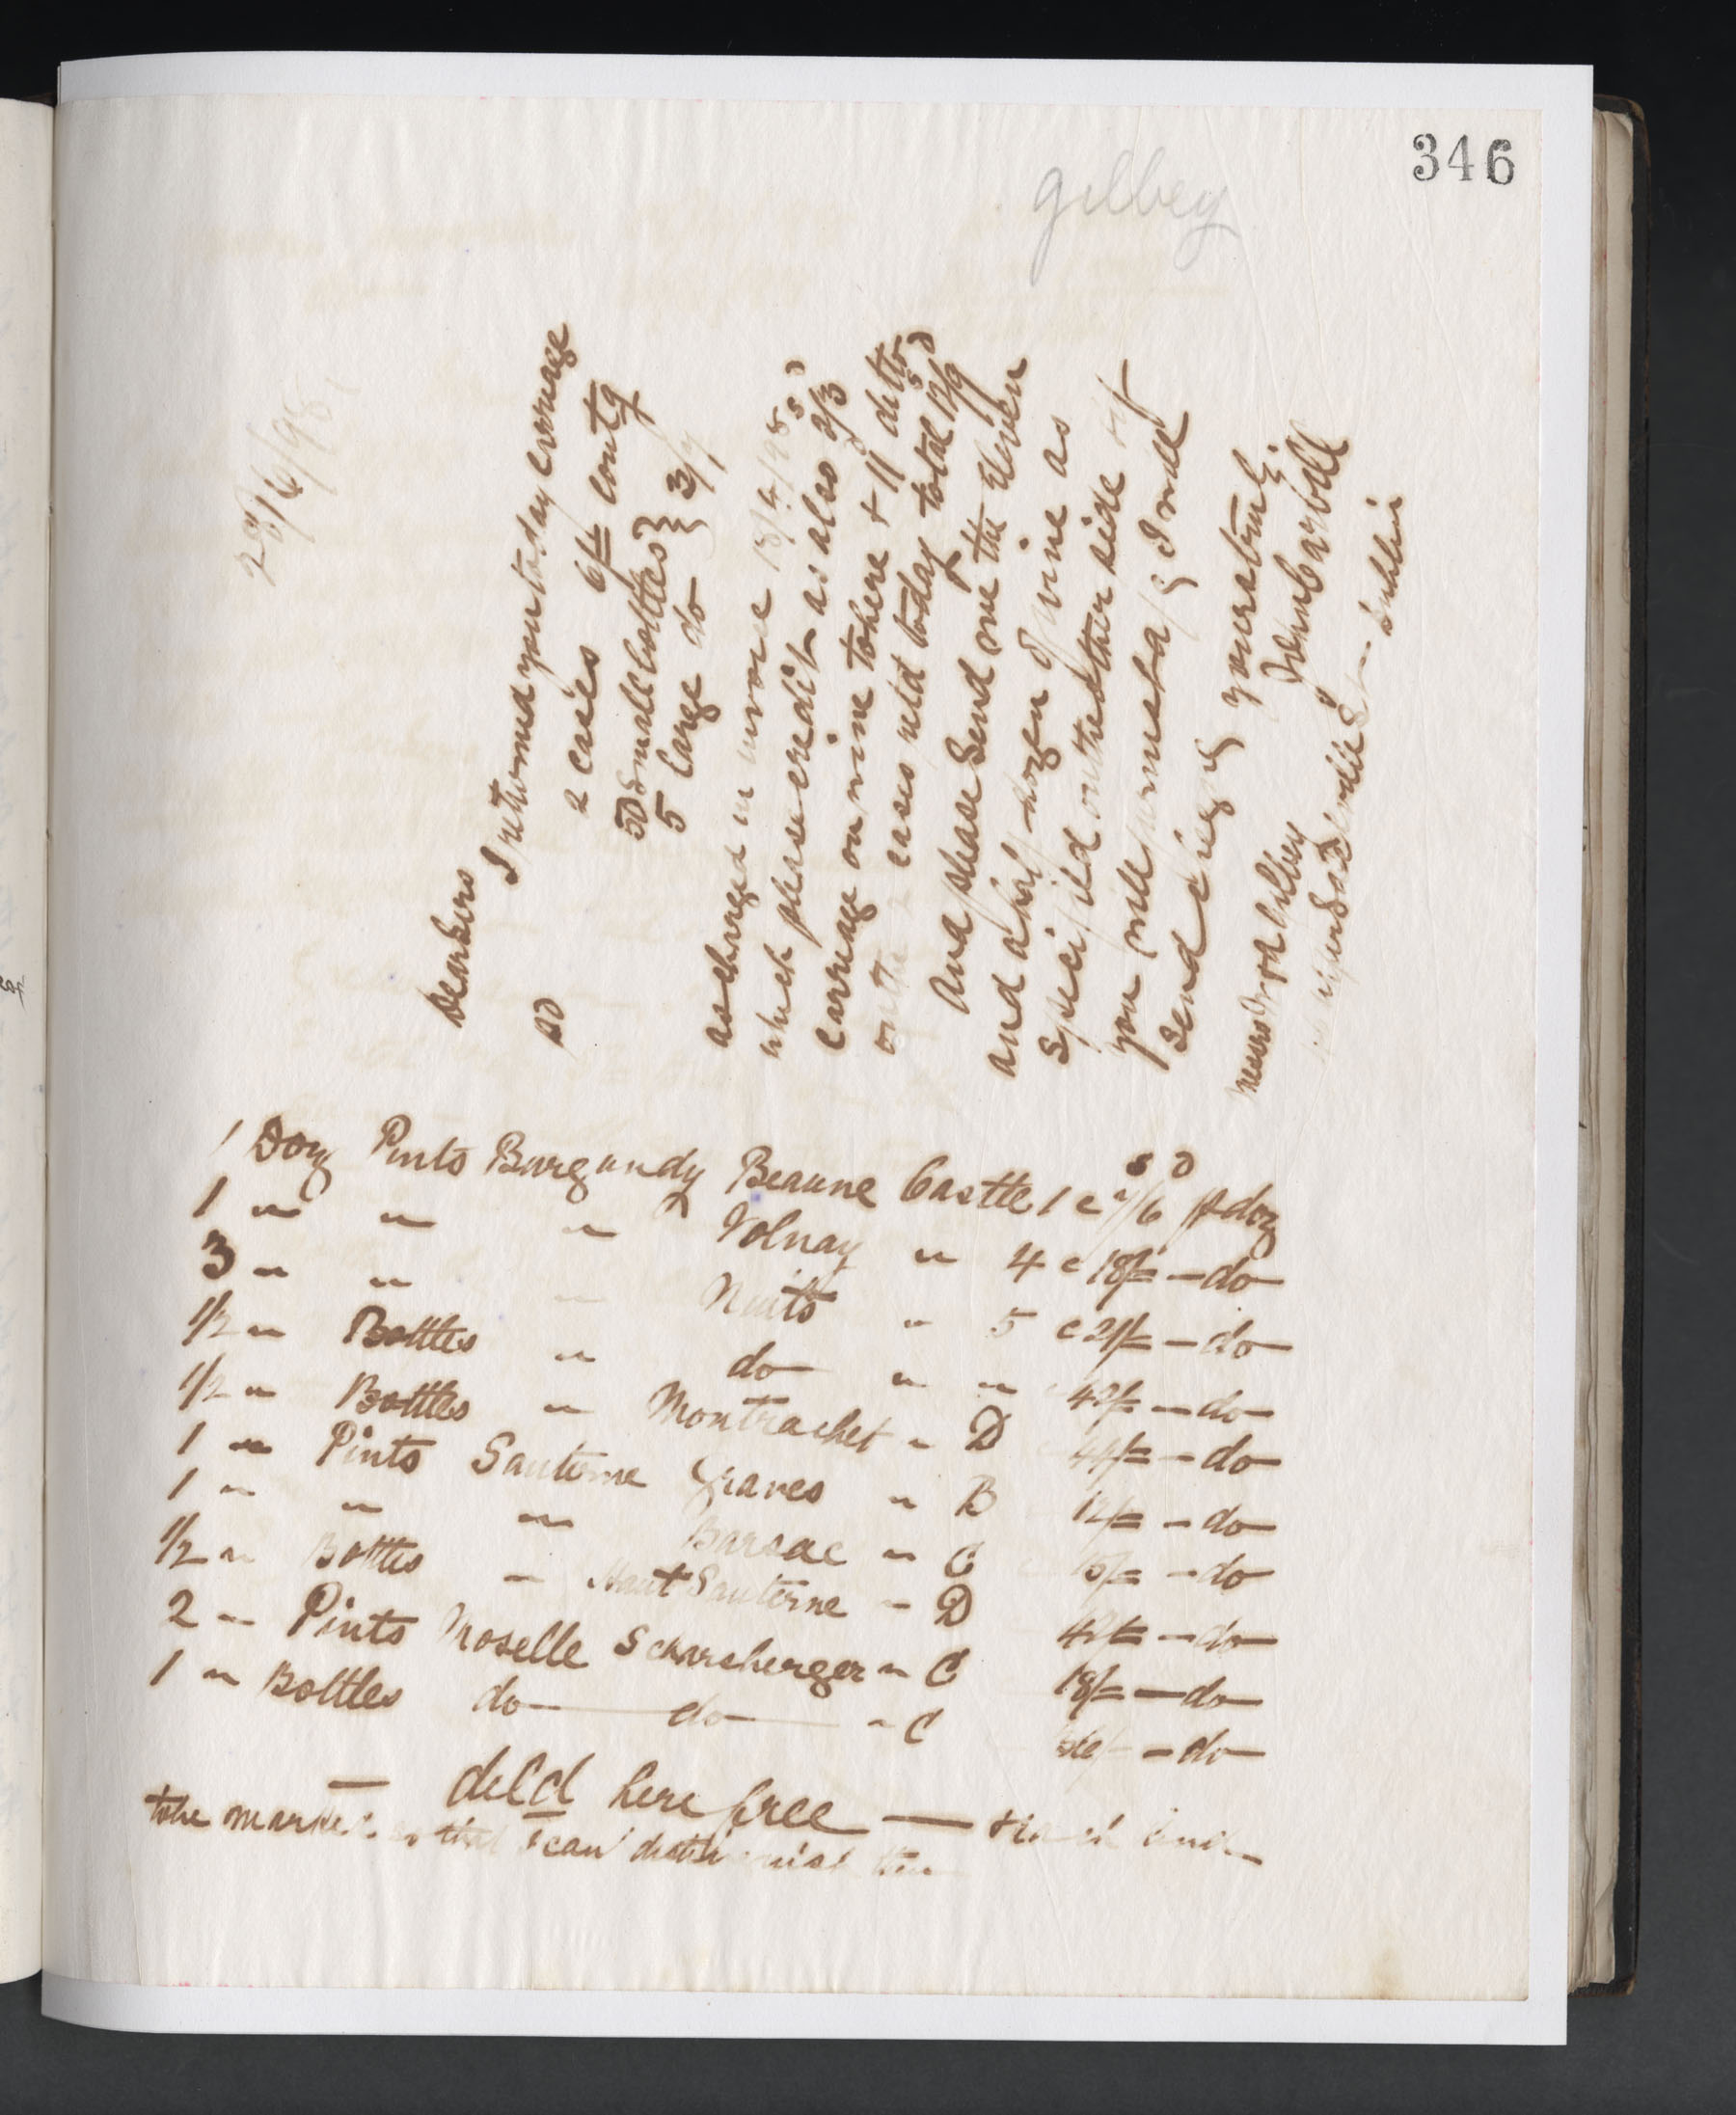 346
gilbey
28/6/98
Dear Sirs
I returned you today carriage
pd 2 cases 6/= contg
50 Small bottles }
5 large do } 3/9
as charged in invoice 18/4/98
which please credit as also 2/3
carriage on wine to here + 11 ditto
on the cases retd today total 12/9
And please Send me the eleven
and a half dozen of wine as
Specified on the other side if
you will furnish a/c I will
Send cheque
yours truly
John Carbill
Messrs W & A Gilbey
Upper Sackville St Dublin
1 Doz Pints Burgundy Beaune Castle 1 @ /6 p doz
1 " " " Volnay " 4 @ 18/= - do
3 " " " Nuits " 5 @ 21/= - do
1/2 " Bottles " do " " 42/= - do
1/2 " Bottles " Montrachet " D 44/= - do
1 " Pints Sauterne Graves " B 12/= - do
1 " " " Barsac " C 15/= - do
1/2 " Bottles " Haut Sauterne " D 42/= - do
2 " Pints Moselle Scharzberger " C 18/= - do
1 " Bottles do do " C 36/- - do
— deld here free — + each
to be marked so that I can distinguish